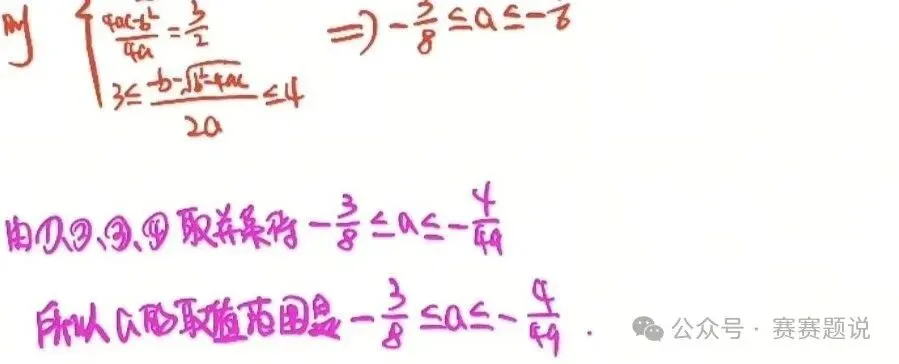 则 { (4ac-b²)/4a = 3/2
3 ≤ (-b-√(b²-4ac))/2a ≤ 4
⇒ -3/8 ≤ a ≤ -
由①、②、③、④取并集得 -3/8 ≤ a ≤ -4/49
所以a的取值范围是 -3/8 ≤ a ≤ -4/49 .
公众号 · 赛赛题说